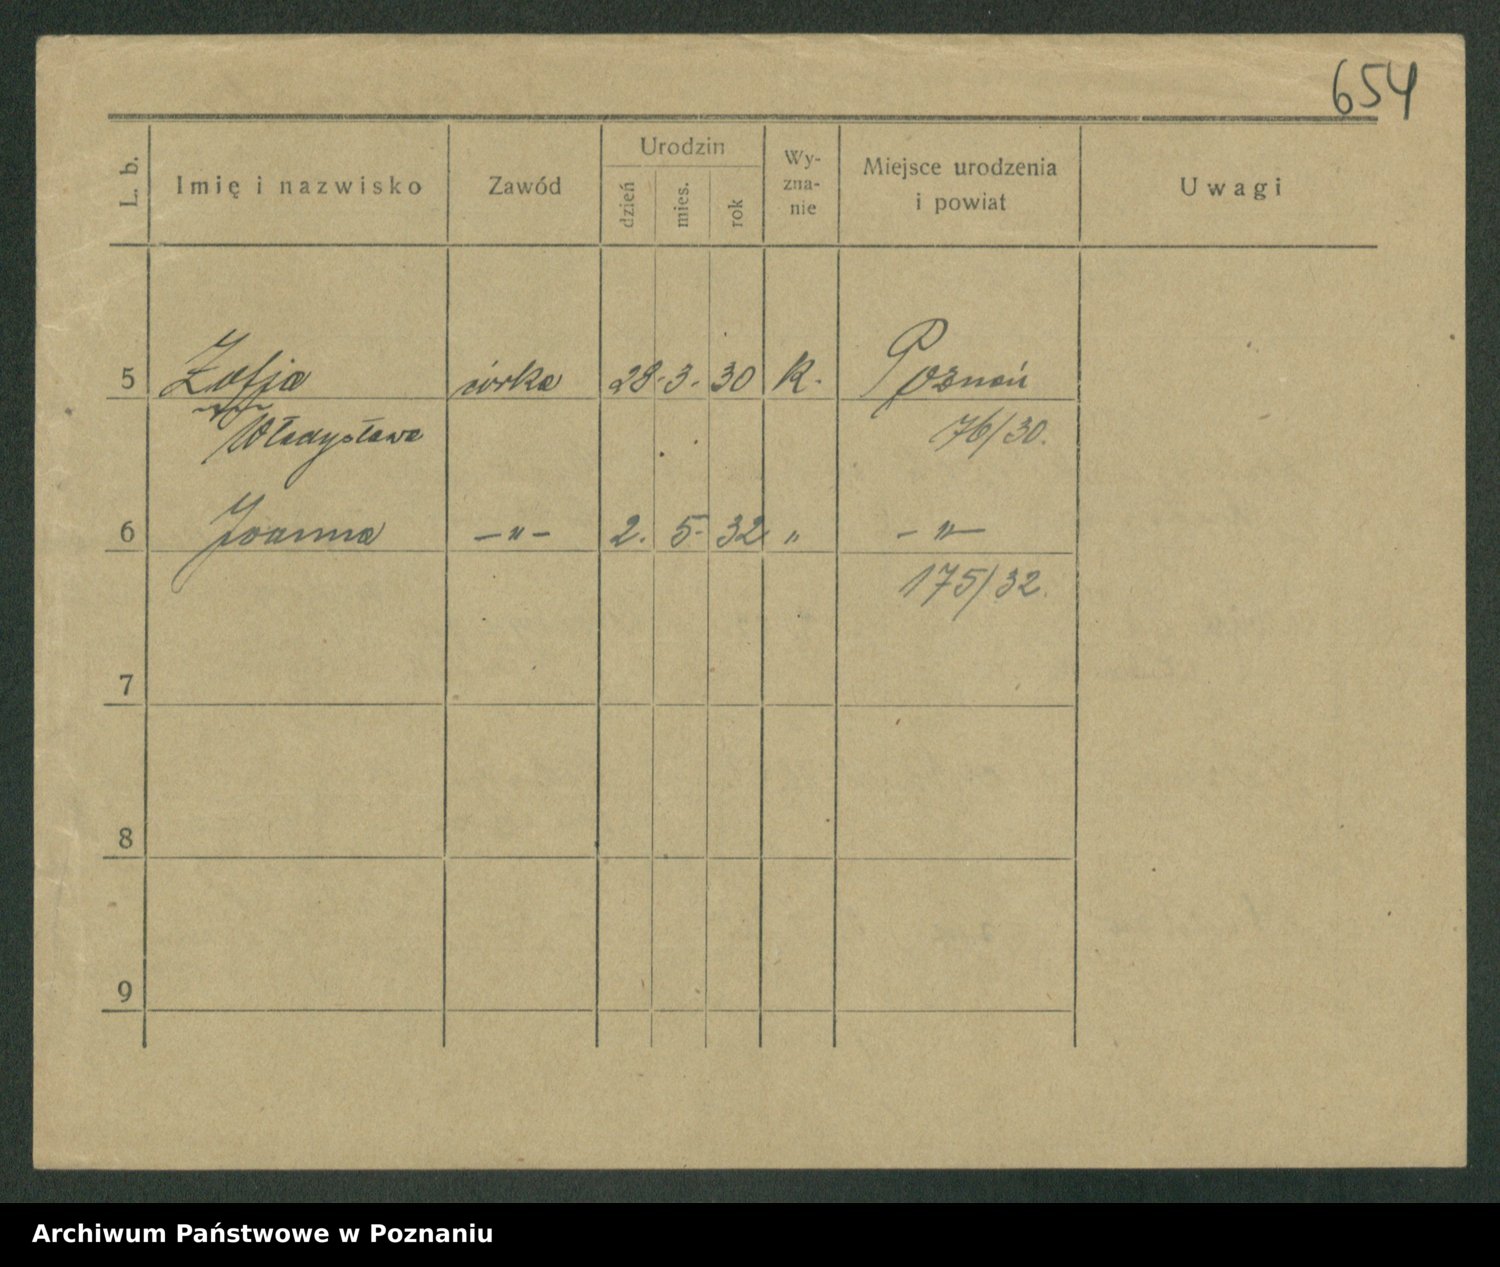 654
L. b.
Imię i nazwisko
Zawód
Urodzin
dzień
mies.
rok
Wy-
zna-
nie
Miejsce urodzenia
i powiat
Uwagi
5 Zofja córka 28. 3. 30 K. Poznań
Władysława 76/30.
6 Joanna —„— 2. 5. 32 „ —„—
175/32.
7
8
9
Archiwum Państwowe w Poznaniu